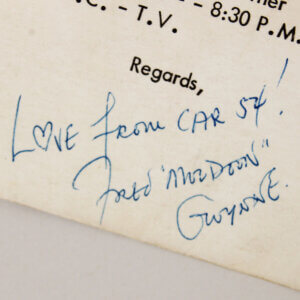 – 8:30 P.M.
.C. – T.V.
Regards,
LOVE FROM CAR 54!
FRED "MULDOON"
GWYNNE.